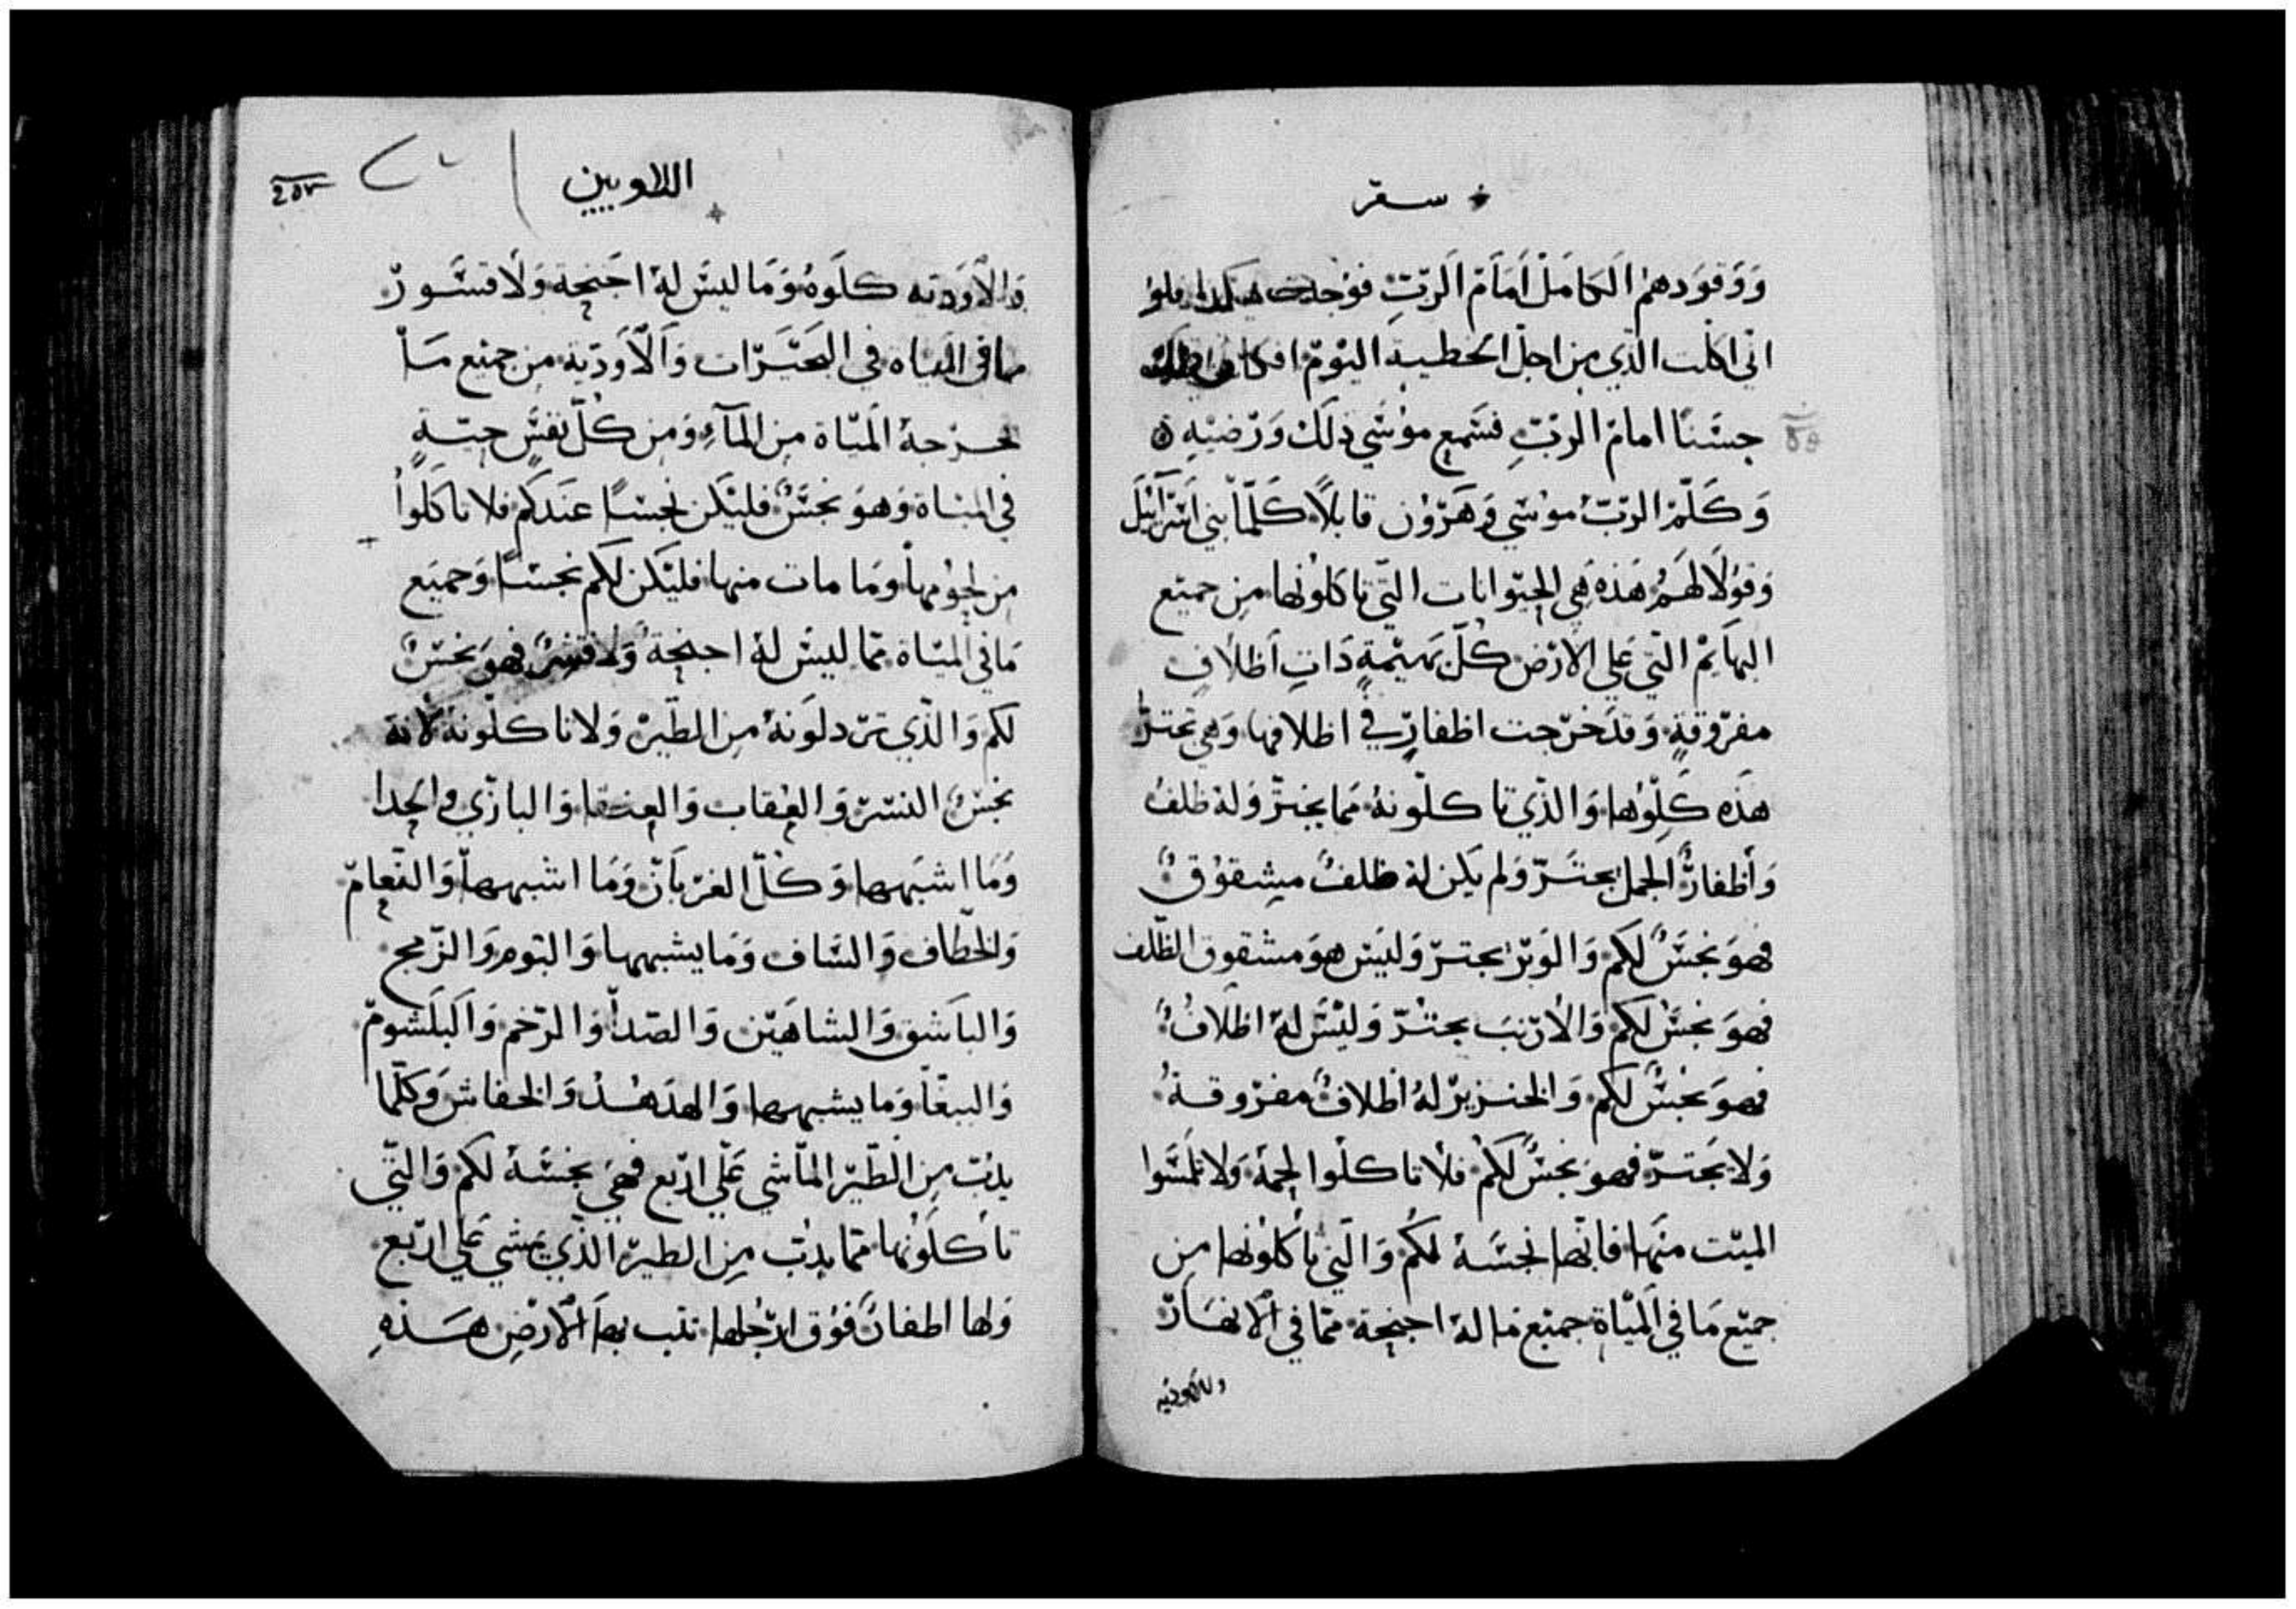 سفر
ووقودهم الكامل امام الرب فوجدت
اني اكلت الذي من اجل الخطية اليوم افكان
حسنًا امام الرب فسمع موسي ذلك ورضيه
وكلم الرب موسي وهرون قايلاً كلما بني اسرآئيل
وقولا لهم هذه هي الحيوانات التي تاكلونها من جميع
البهايم التي علي الارض كل بهيمةٍ ذات اظلافٍ
مفروقةٍ وقد خرجت اظفارٍ في اظلافها وهي تجترّ
هذه كلوها والذي تاكلونه مما يجتر وله ظلف
وأظفارٌ الجمل يجتر ولم يكن له ظلفٌ مشقوقٌ
فهو نجسٌ لكم والوبر يجتر وليس هو مشقوق الظلف
فهو نجسٌ لكم والارنب يجتر وليس له اظلافٌ
فهو نجسٌ لكم والخنزير له اظلافٌ مفروقةٌ
ولا يجتر فهو نجسٌ لكم فلا تاكلوا لحمه ولا تلمسوا
الميت منها فانها نجسة لكم والتي تاكلونها من
جميع ما في المياة جميع ما له اجنحة مما في الانهار
والاوديه
اللاويين
٢٥٣
والاوديه كلوه وما ليس له اجنحة ولا قشور
مما في المياه في البحيرات والاودية من جميع ما
تخرجه المياة من المآء ومن كل نفسٍ حيةٍ
في المياة وهو نجسٌ فليكن نجسًا عندكم فلا تاكلوا
من لحومها وما مات منها فليكن لكم نجسًا وجميع
ما في المياة مما ليس له اجنحة ولا قشرٌ فهو نجسٌ
لكم والذي تردلونه من الطير ولا تاكلونه لانه
نجسٌ النسر والعقاب والعنقا والبازي والحدا
وما اشبهها وكل الغربان وما اشبهها والنعام
والخطاف والساف وما يشبهها والبوم والزمج
والباشق والشاهين والصدا والرخم والبلشوم
والببغا وما يشبهها والهدهد والخفاش وكلما
يدب من الطير الماشي علي اربع فهي نجسة لكم والتي
تاكلونها مما يدب من الطير الذي يمشي علي اربع
ولها اظفارٌ فوق ارجلها تثب بها الارض هذه